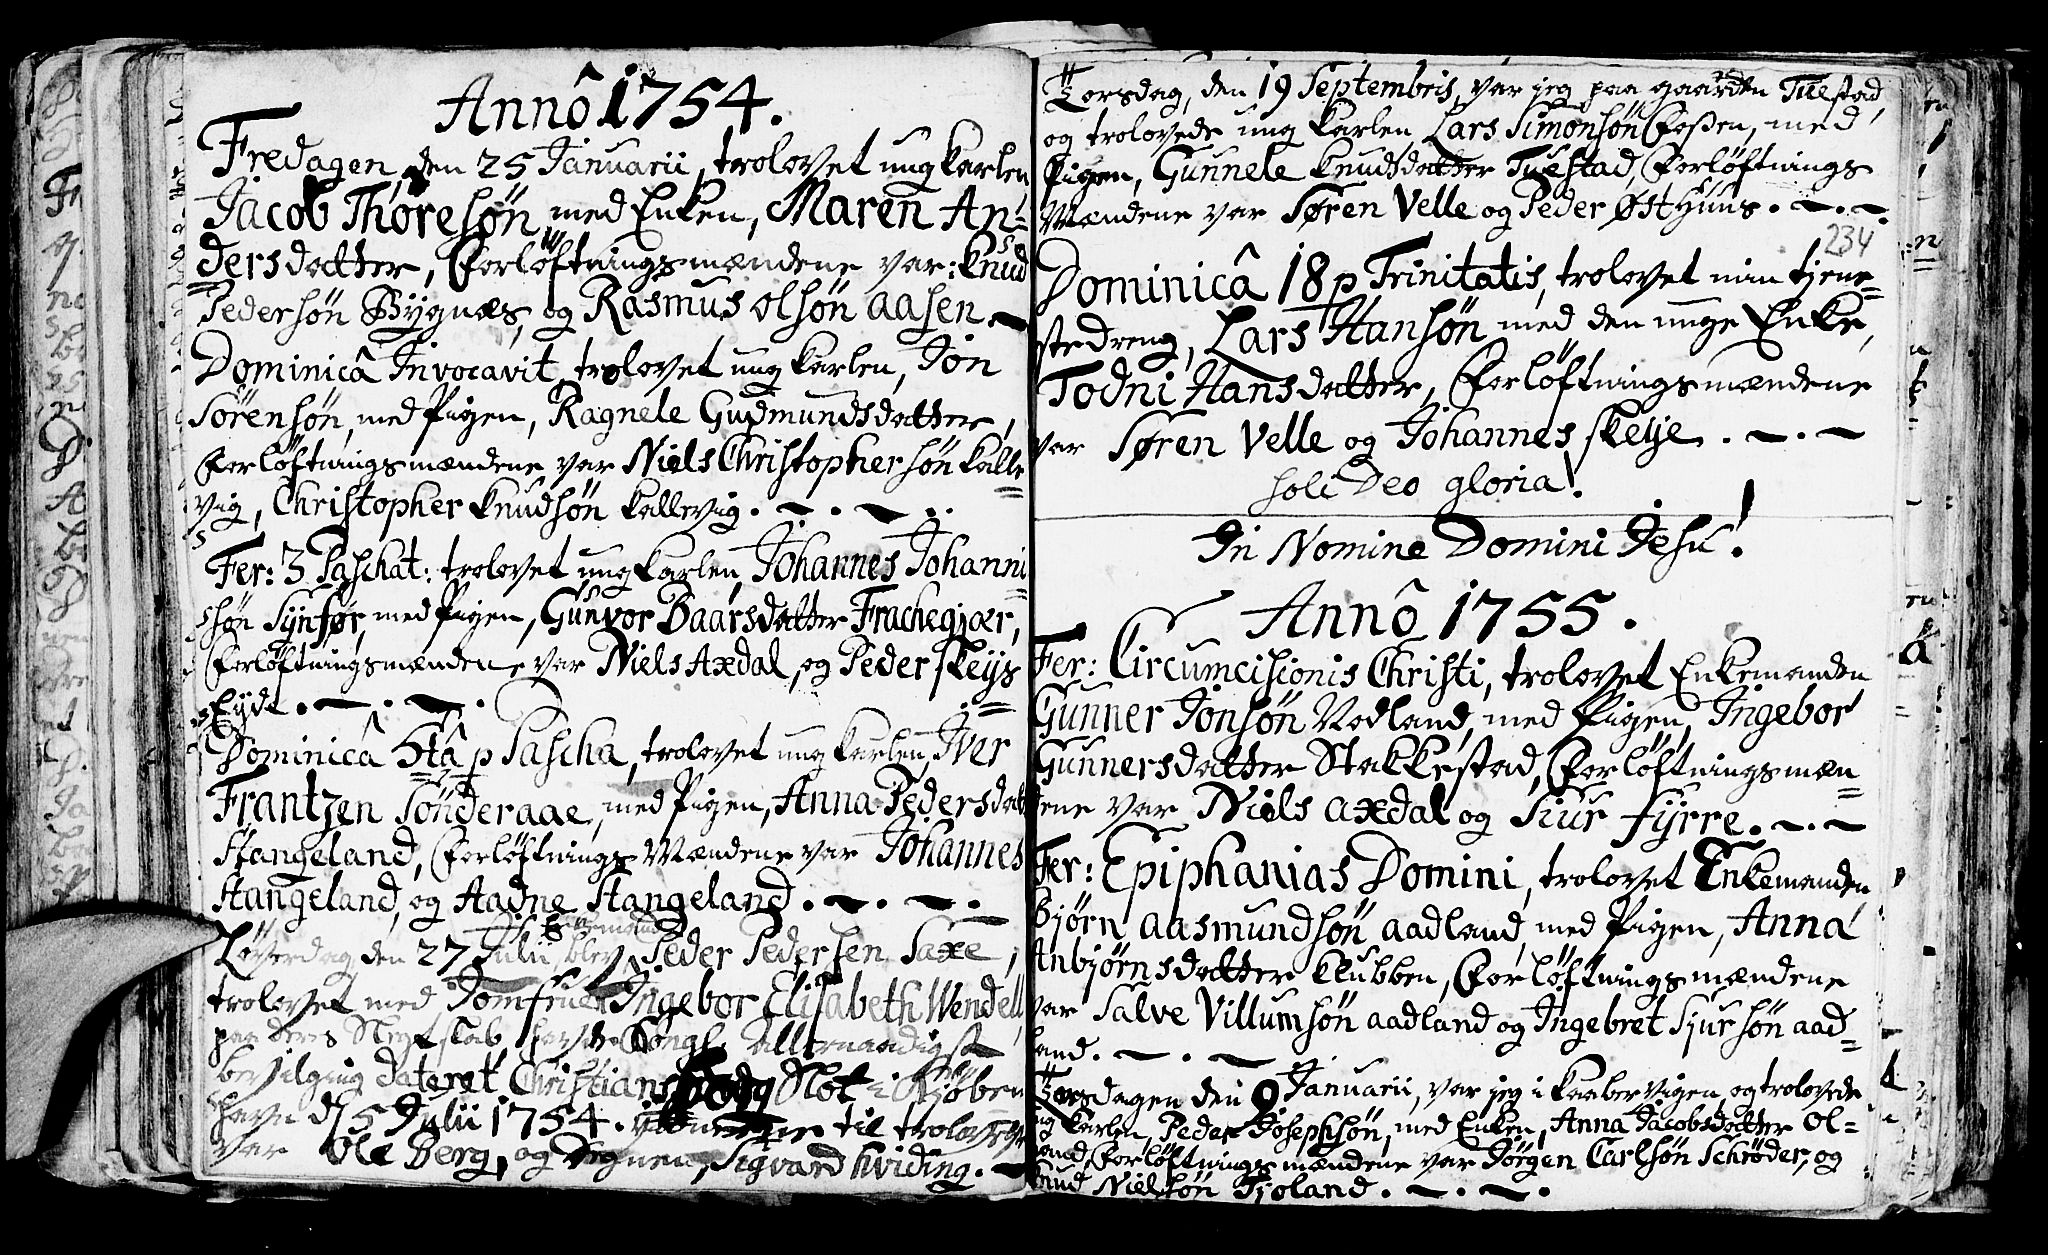 Annô 1754.
Fredagen, den 25 Januarii, trolovet ung karlen
Jacob Thoresøn med Enken, Maren An=
dersdatter, Forløftningsmændene var: Knud
Pedersøn Bygnæs, og Rasmus Olsøn Aasen
Dominicâ Invocavit, trolovet ung karlen, Jon
Sørensøn, med Pigen, Ragnele Gudmundsdatter,
Forløftningsmændene var Niels Christophersøn Kalle=
vig, Christopher Knudsøn Kallevig.
Fer: 3 Paschat: trolovet ung karlen Johannes Johanni=
søn Synfør, med Pigen, Gunvor Baarsdatter Frachegjær,
Forløftningsmændene var Niels Axdal, og Peder Skeijs=
Eyde.
Dominicâ 5tâ p Pascha, trolovet ung karlen, Iver
Frantzen Sønderaae, med Pigen, Anna Pedersdatt
Stangeland, Forløftnings Mændene var Johannes
Stangeland, og Aadne Stangeland.
Løverdag, den 27 Julii, blev Peder Pedersen Saxe,
trolovet med Jomfrue Ingebor Elisabeth Wendell,
paa deres Kongl. Allernaadigst
bevilging dateret Christiansborg Slot i Kiøben
havn d 5 Julii 1754. til trolov
var Ole Berg, og Degnen, Sigvard Hviding.
Torsdag, den 19 Septembris, var jeg paa gaarden Tuestad
og trolovede ung karlen Lars Simonsøn Fossen, med
Pigen, Gunnele Knudsdatter Tuestad, Forløftnings
Mændene var Søren Velle og Peder Østhuus.
234
Dominicâ 18 p Trinitatis, trolovet min tjene=
stedreng, Lars Hansøn med den unge Enke,
Todni Hansdatter, Forløftningsmændene
var Søren Velle og Johannes Skeije.
Soli Deo gloria!
In Nomine Domini Jesu!
Annô 1755.
Fer: Circumcisionis Christi, trolovet Enkemanden
Gunner Jonsøn Vodland, med Pigen, Ingebor
Gunnersdatter Stakkestad, Forløftningsmæn=
dene var Niels Axdal og Siur Fyrre.
Fer: Epiphanias Domini, trolovet Enkemanden
Bjørn Aasmundsøn Aadland, med Pigen, Anna
Anbjørnsdatter Klubben, Forløftningsmændene
var Salve Villumsøn Aadland og Ingebret Sjursøn Aad=
land.
Torsdagen den 9 Januarii, var jeg i Kaabervigen, og trolovede
ung karlen Peder Josephsøn, med Enken, Anna Jacobsdatter Ol=
land, Forløftningsmændene var Jørgen Carlsøn Schrøder, og
Knud Nielsøn Tjoland.